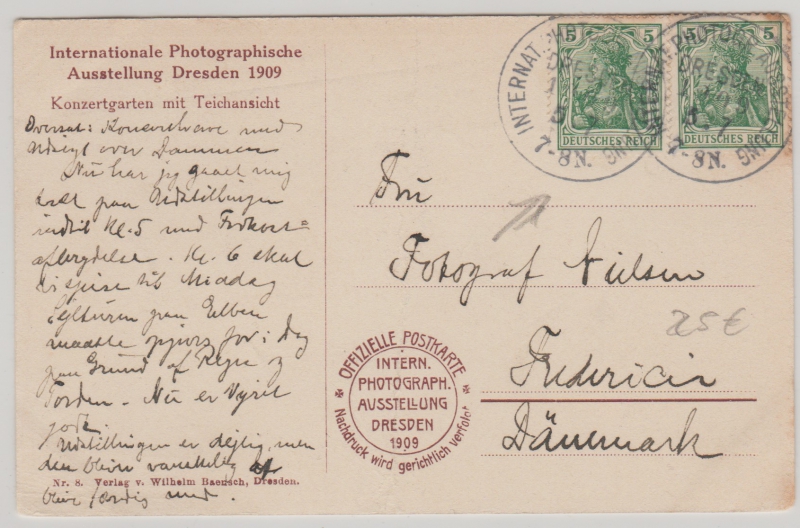 Internationale Photographische
Ausstellung Dresden 1909
Konzertgarten mit Teichansicht
Oversat: Koncerthave med
Udsigt over Dammen
Nu har jeg gaaet mig
træt paa Udstillingen
indtil Kl. 5 med Frokost=
afbrydelse. Kl. 6 skal
vi spise til Middag
Sejlturen paa Elben
maatte opgives for i Dag
paa Grund af Regn og
Torden. Nu er Vejret
godt.
Udstillingen er dejlig, men
den bliver vanskelig at
blive færdig med.
Nr. 8. Verlag v. Wilhelm Baensch, Dresden.
INTERNAT. PHOTOGR.
DRESDEN
7-8N.
5 5
DEUTSCHES REICH
INTERNAT. PHOTOGR. AUSST.
DRESDEN
7-8N.
5 5
DEUTSCHES REICH
Fru
Fotograf Nielsen
Fredericia
Dänemark
25 €
OFFIZIELLE POSTKARTE
INTERN.
PHOTOGRAPH.
AUSSTELLUNG
DRESDEN
1909
Nachdruck wird gerichtlich verfolgt